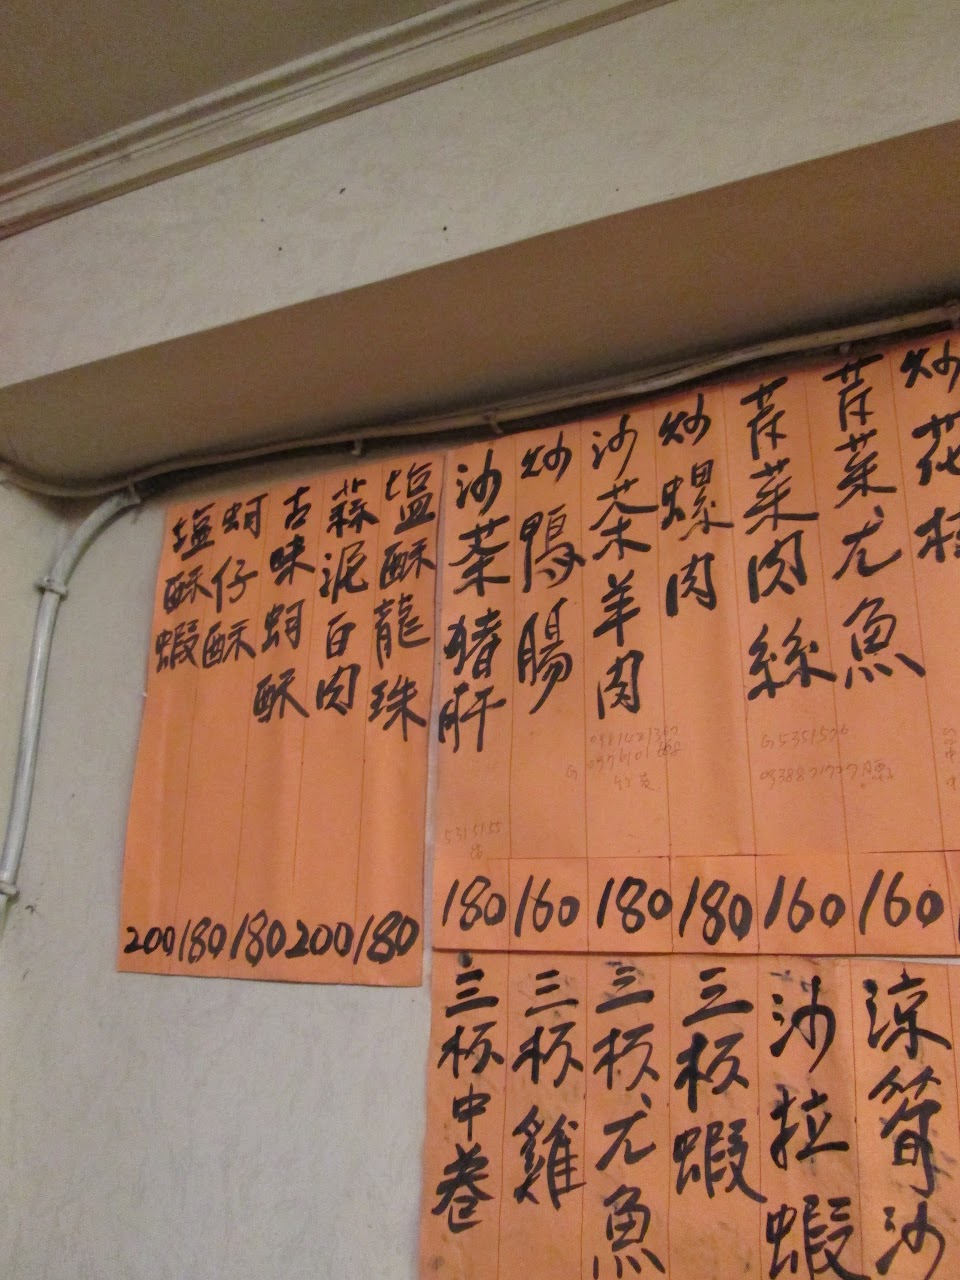 炒花枝
芹菜尤魚
160
芹菜肉絲
160
炒螺肉
180
沙茶羊肉
180
炒鴨腸
160
沙茶猪肝
180
塩酥龍珠
180
蒜泥白肉
200
古味蚵酥
180
蚵仔酥
180
塩酥蝦
200
涼筍沙
沙拉蝦
三杯蝦
三杯尤魚
三杯雞
三杯中卷
5315155
G5351576